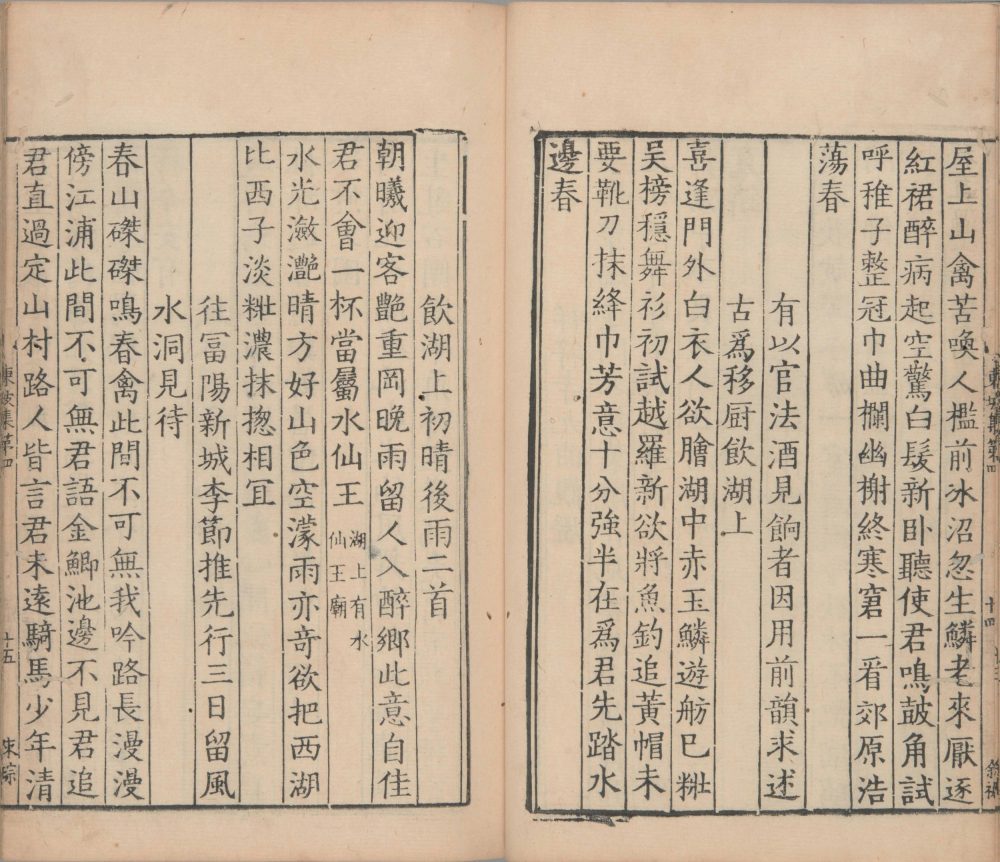 屋上山禽苦喚人檻前氷沼忽生鱗老來厭逐
紅裙醉病起空驚白髮新卧聽使君鳴鼓角試
呼稚子整冠巾曲欄幽榭終寒窘一看郊原浩
蕩春
有以官法酒見餉者因用前韻求述
古爲移厨飲湖上
喜逢門外白衣人欲膾湖中赤玉鱗遊舫已粧
吳榜穩舞衫初試越羅新欲將魚釣追黃帽未
要靴刀抹絳巾芳意十分強半在爲君先踏水
邊春
東坡集第四
十四
飲湖上初晴後雨二首
朝曦迎客艷重岡晚雨留人入醉鄉此意自佳
君不會一杯當屬水仙王
湖上有水
仙王廟
水光瀲灧晴方好山色空濛雨亦竒欲把西湖
比西子淡粧濃抹揔相冝
往冨陽新城李節推先行三日留風
水洞見待
春山磔磔鳴春禽此間不可無我吟路長漫漫
傍江浦此間不可無君語金鯽池邊不見君追
君直過定山村路人皆言君未遠騎馬少年清
東坡集第四
十五
宋琮